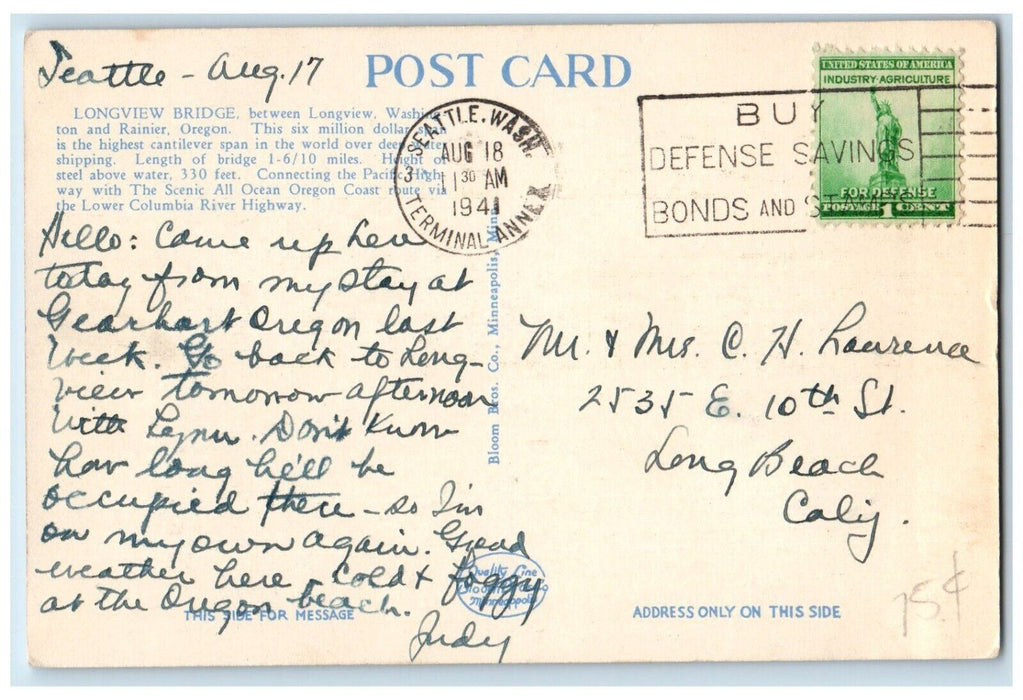 Seattle - Aug. 17
POST CARD
LONGVIEW BRIDGE, between Longview, Washing
ton and Rainier, Oregon. This six million dollar span
is the highest cantilever span in the world over deep water
shipping. Length of bridge 1-6/10 miles. Height of
steel above water, 330 feet. Connecting the Pacific High-
way with The Scenic All Ocean Oregon Coast route via
the Lower Columbia River Highway.
Hello: Came up here
today from my stay at
Gearhart Oregon last
week. Go back to Long-
view tomorrow afternoon
with Lynn. Don't know
how long he'll be
occupied there - so I'm
on my own again. Good
weather here, cold & foggy
at the Oregon beach.
Judy
THIS SIDE FOR MESSAGE
SEATTLE, WASH.
3
AUG 18
11 30 AM
1941
TERMINAL ANNEX
Bloom Bros. Co., Minneapolis, Minn.
Quality Line
Minneapolis
BUY
DEFENSE SAVINGS
BONDS AND STAMPS
UNITED STATES OF AMERICA
INDUSTRY·AGRICULTURE
FOR DEFENSE
POSTAGE 1 CENT
Mr. & Mrs. C. H. Lawrence
2535 E. 10th St.
Long Beach
Calif.
ADDRESS ONLY ON THIS SIDE
75¢